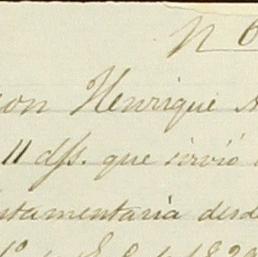 N 6
on Henrique
11 dhs. que sirvió
ntamentaria desd